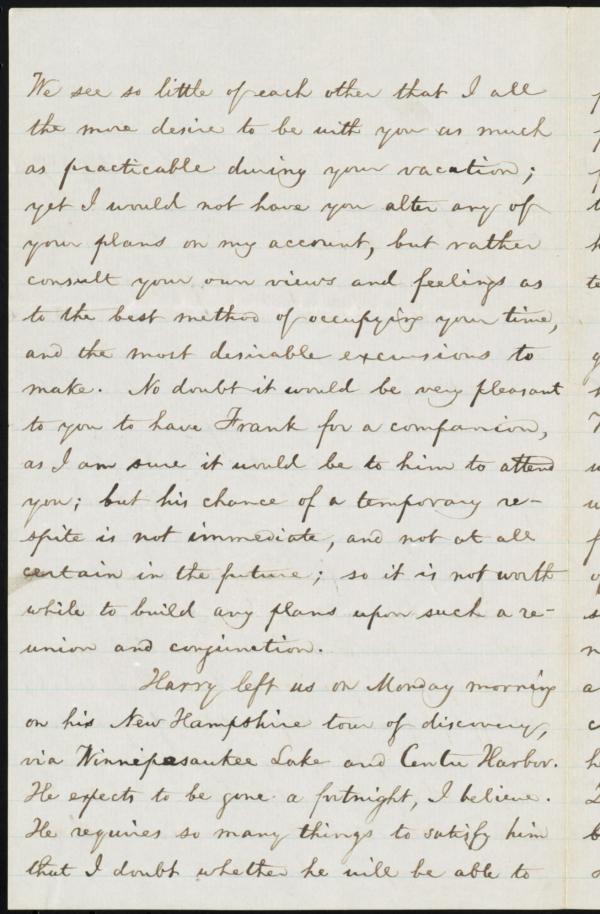 We see so little of each other that I all
the more desire to be with you as much
as practicable during your vacation;
yet I would not have you alter any of
your plans on my account, but rather
consult your own views and feelings as
to the best method of occupying your time,
and the most desirable excursions to
make. No doubt it would be very pleasant
to you to have Frank for a companion,
as I am sure it would be to him to attend
you; but his chance of a temporary re-
spite is not immediate, and not at all
certain in the future; so it is not worth
while to build any plans upon such a re-
union and conjunction.
Harry left us on Monday morning
on his New Hampshire tour of discovery,
via Winnepesaukee Lake and Centre Harbor.
He expects to be gone a fortnight, I believe.
He requires so many things to satisfy him
that I doubt whether he will be able to